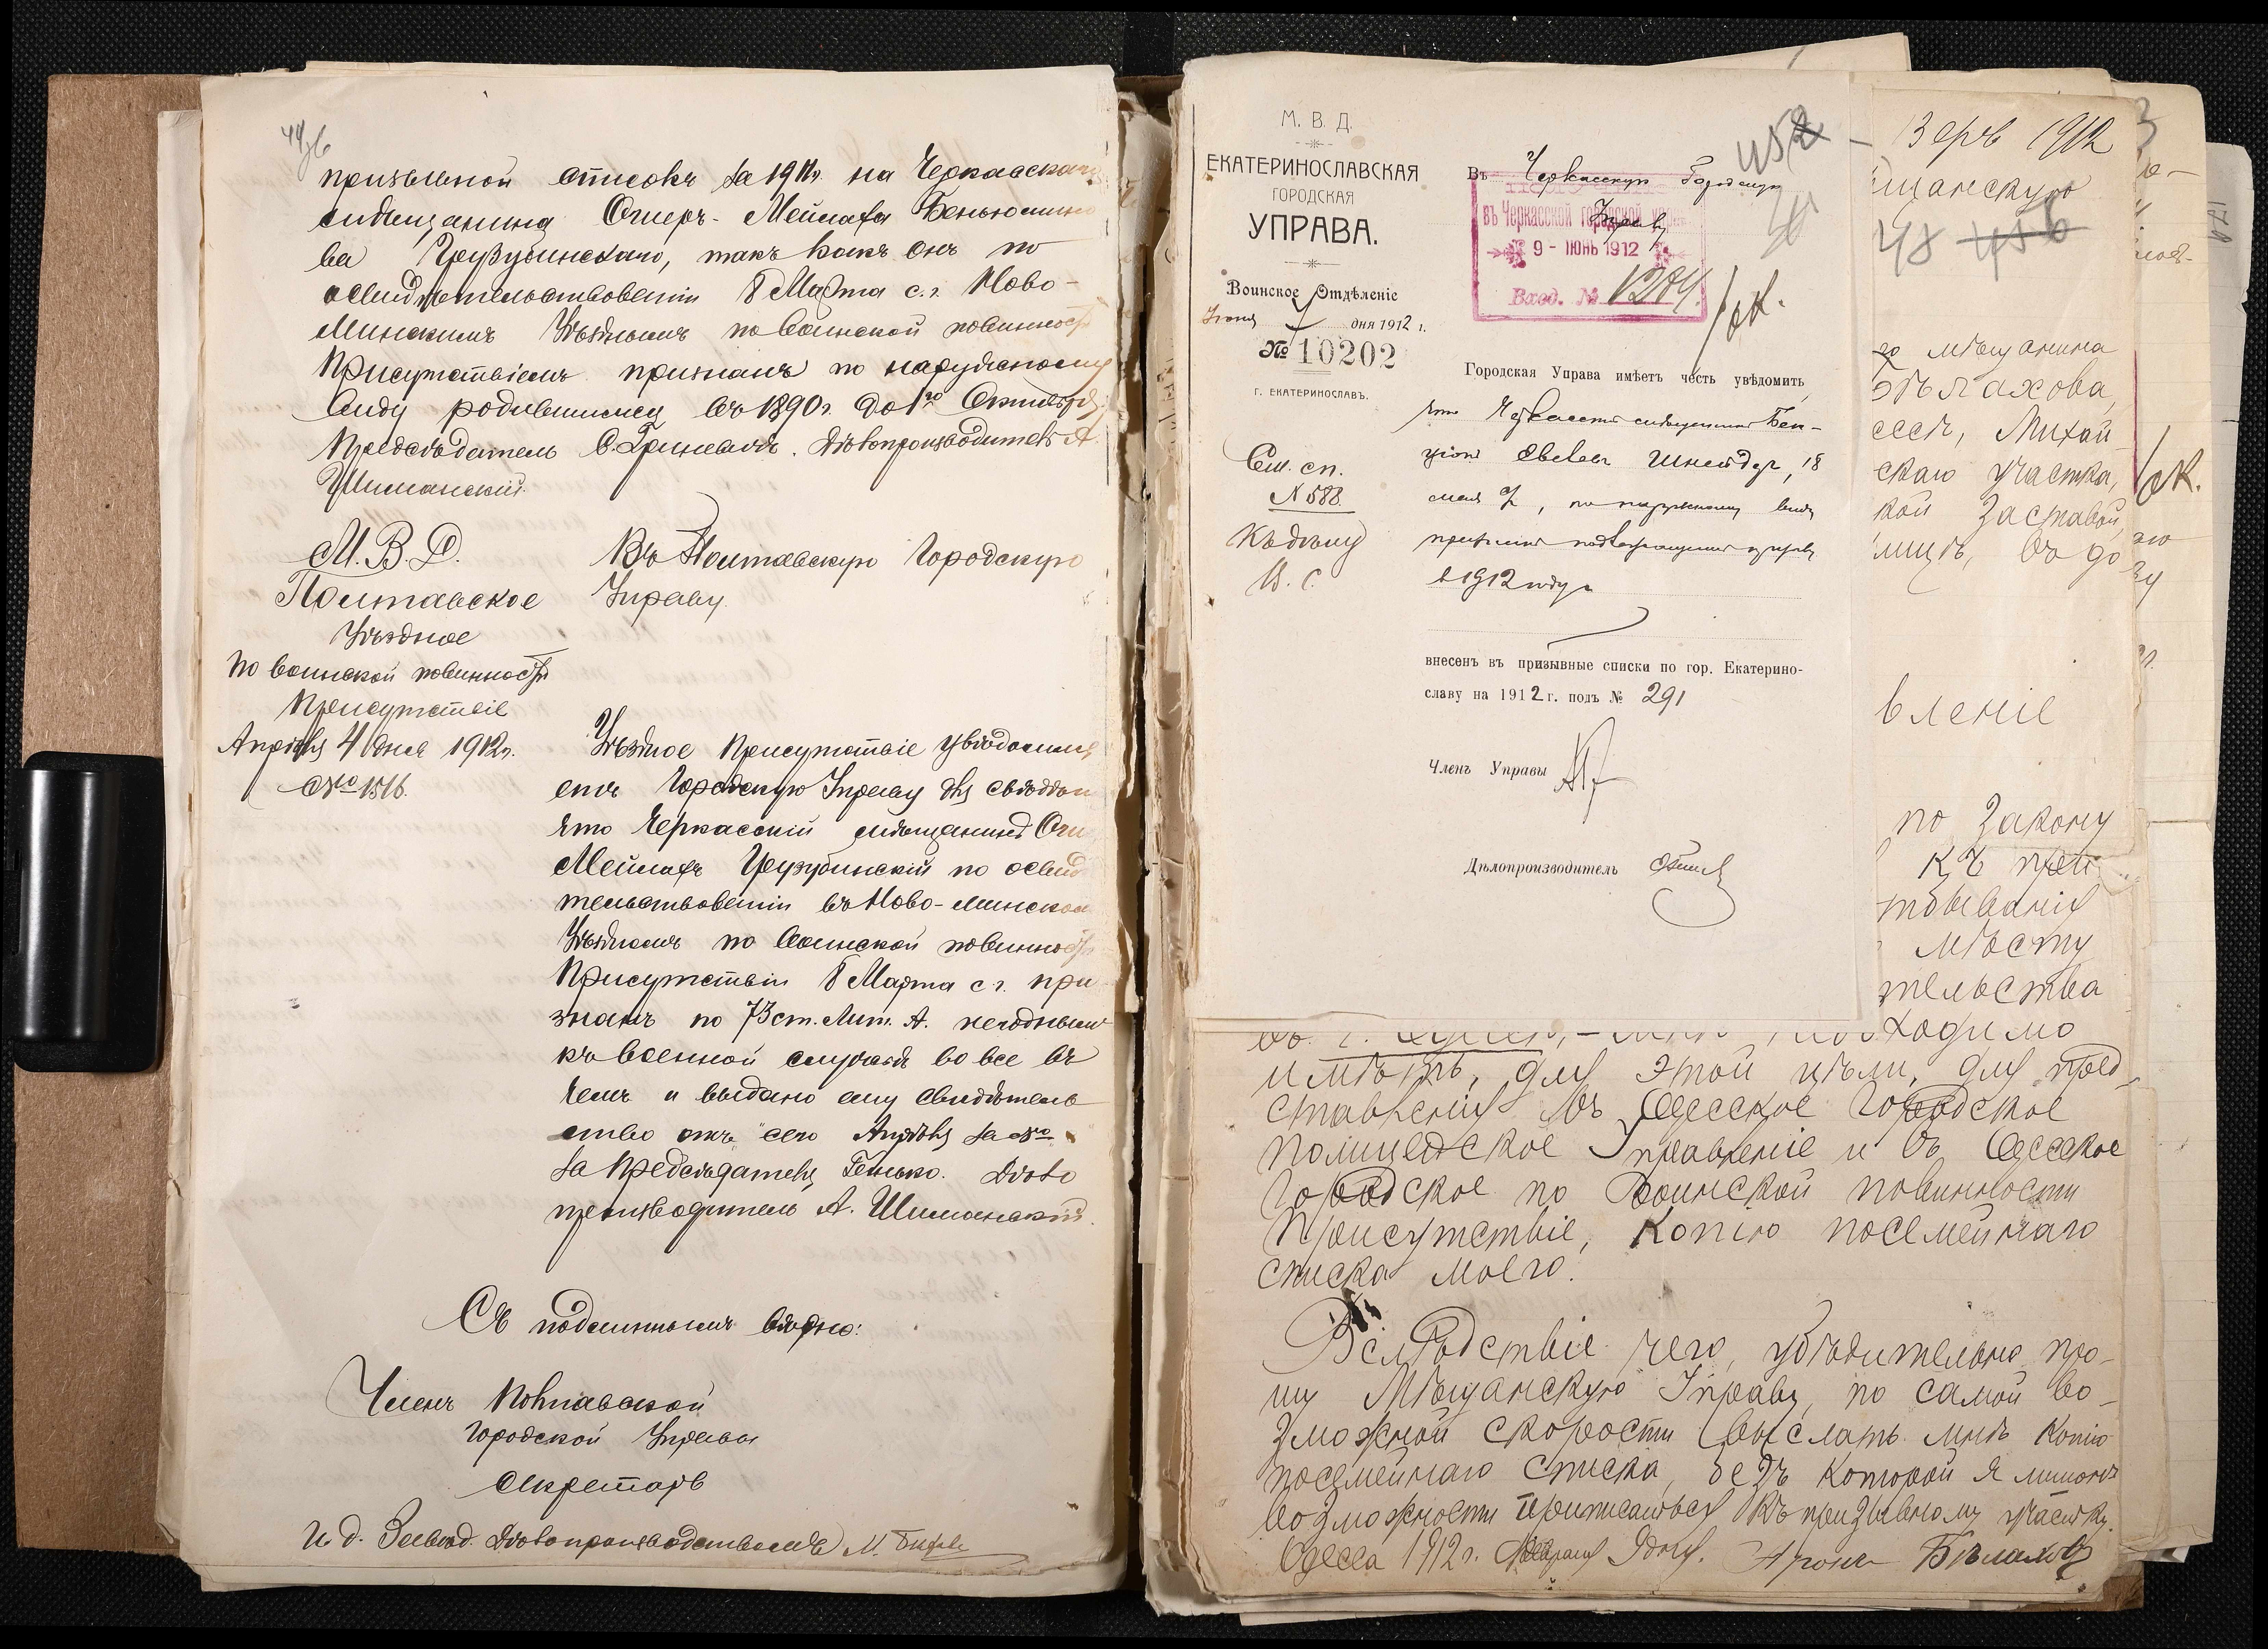 призывной списокъ за 1911г. на Черкасскаго
мѣщанина Ошеръ-Мейлаха Беньюмино
ва Цеузубинскаго, такъ какъ онъ по
освидѣтельствованіи 8 Марта с.г. Ново-
Минскимъ Уѣзднымъ по воинской повинности
Присутствіемъ признанъ по наружному
виду родившимся въ 1890г. до 1го Октября
Предсѣдатель Дѣлопроизводитель А.
Шиманскій.
М.В.Д.
Полтавское
Уѣздное
по воинской повинности
Присутствіе
Апрѣля 4 дня 1912г.
№ 1516.
Въ Полтавскую Городскую
Управу.
Уѣздное Присутствіе увѣдомля
етъ Городскую Управу для свѣдѣн
что Черкасскій мѣщанинъ Оше
Мейлахъ Цеузубинскій по освид
тельствованіи въ Ново-Минском
Уѣздномъ по воинской повинности
Присутствіи 8 Марта с.г. при
знанъ по 73 ст. Лит. А. негоднымъ
къ военной службѣ вовсе въ
чемъ и выдано ему свидѣтель
ство отъ сего Апрѣля за №
За Предсѣдателя Генько. Дѣло
производитель А. Шиманскій.
Съ подлиннымъ вѣрно:
Членъ Полтавской
Городской Управы
Секретарь
И. д. Завѣд. Дѣлопроизводствомъ М.
М. В. Д.
ЕКАТЕРИНОСЛАВСКАЯ
ГОРОДСКАЯ
УПРАВА.
Воинское Отдѣленіе
Іюня 7 дня 1912 г.
№ 10202
Г. ЕКАТЕРИНОСЛАВЪ.
Сем. сп.
№ 588.
Къ дѣлу
Въ Черкасскую Городскую
Управу
въ Черкасской городской управ
9 - ІЮНЬ 1912
Вход. № 1284.
Городская Управа имѣетъ честь увѣдомить,
что Черкасскій мѣщанинъ Бен-
ціонъ Шнейдер, 18
мая, по наружному виду
призванъ подлежащимъ призыву
в 1912 году
внесенъ въ призывные списки по гор. Екатерино-
славу на 1912 г. подъ № 291
Членъ Управы
Дѣлопроизводитель
1912
щанскую
48
го мѣщанина
Бѣлахова,
ессѣ, Михай
скаго участка,
кой заставой,
лицѣ, въ до
вленіе
по закону
къ при
тыванія
мѣсту
тельства
ходимо
имѣть, для этой цѣли, для пред-
ставленія въ Одесское Городское
полицейское Управленіе и въ Одесское
Городское по воинской повинности
Присутствіе, копію посемейнаго
списка моего.
Вслѣдствіе чего, убѣдительно про-
шу Мѣщанскую Управу, по самой во-
зможной скорости выслать мнѣ копію
посемейнаго списка, безъ которой я лишенъ
возможности приписаться къ призывному участку.
Одесса 1912 г. Февраля 9 дня. Аронъ Бѣлаховъ